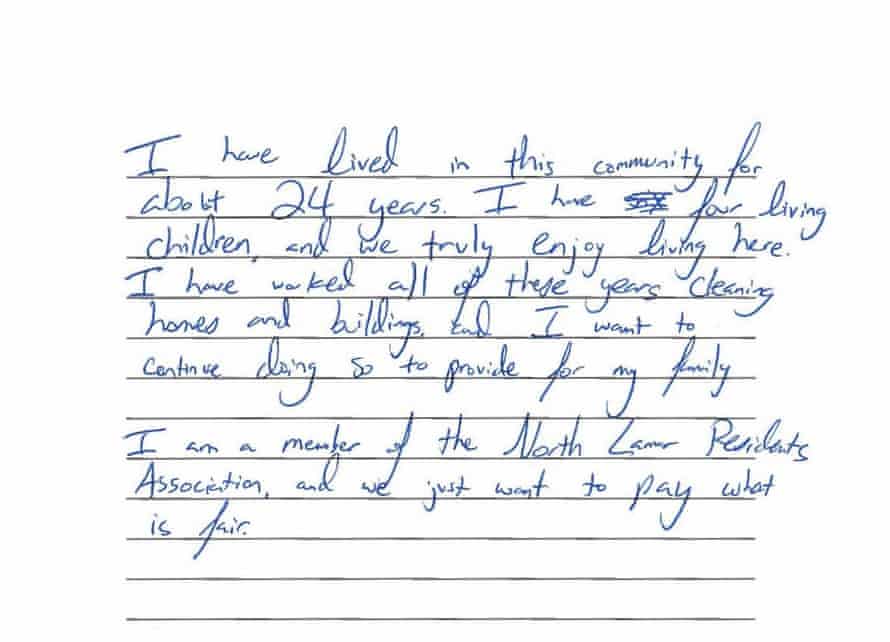 I have lived in this community for
about 24 years. I have four living
children, and we truly enjoy living here.
I have worked all of these years cleaning
homes and buildings, and I want to
continue doing so to provide for my family
I am a member of the North Lamar Residents
Association, and we just want to pay what
is fair.